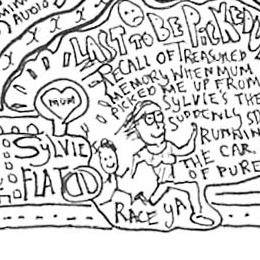 AUDIO
LAST TO BE PICKED
RECALL OF TREASURED
MEMORY WHEN MUM
PICKED ME UP FROM
SYLVIE'S THE
SUDDENLY
RUNNIN
THE CAR
OF PURE
MUM
SYLVIE
FLAT
RACE YA